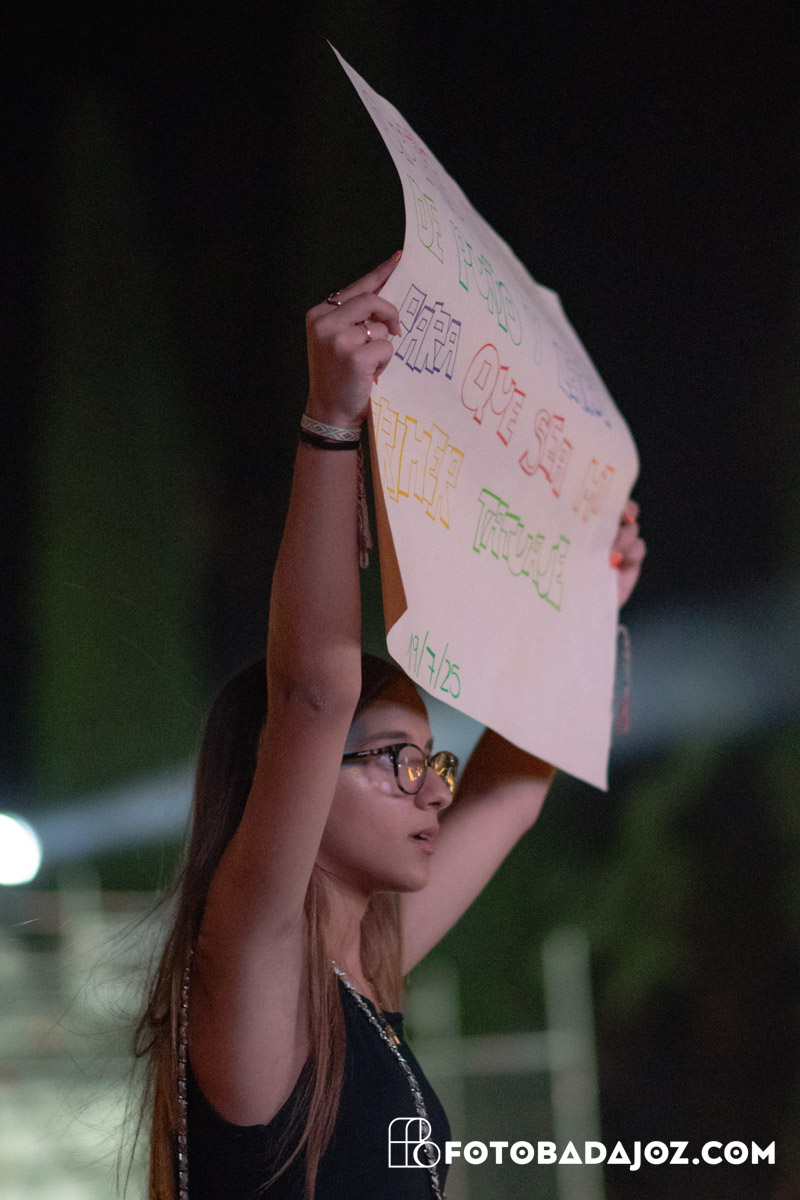 DE PUÑO Y LETRA
PARA QUE SEA MI
PRIMER TATUAJE
19/7/25
FOTOBADAJOZ.COM